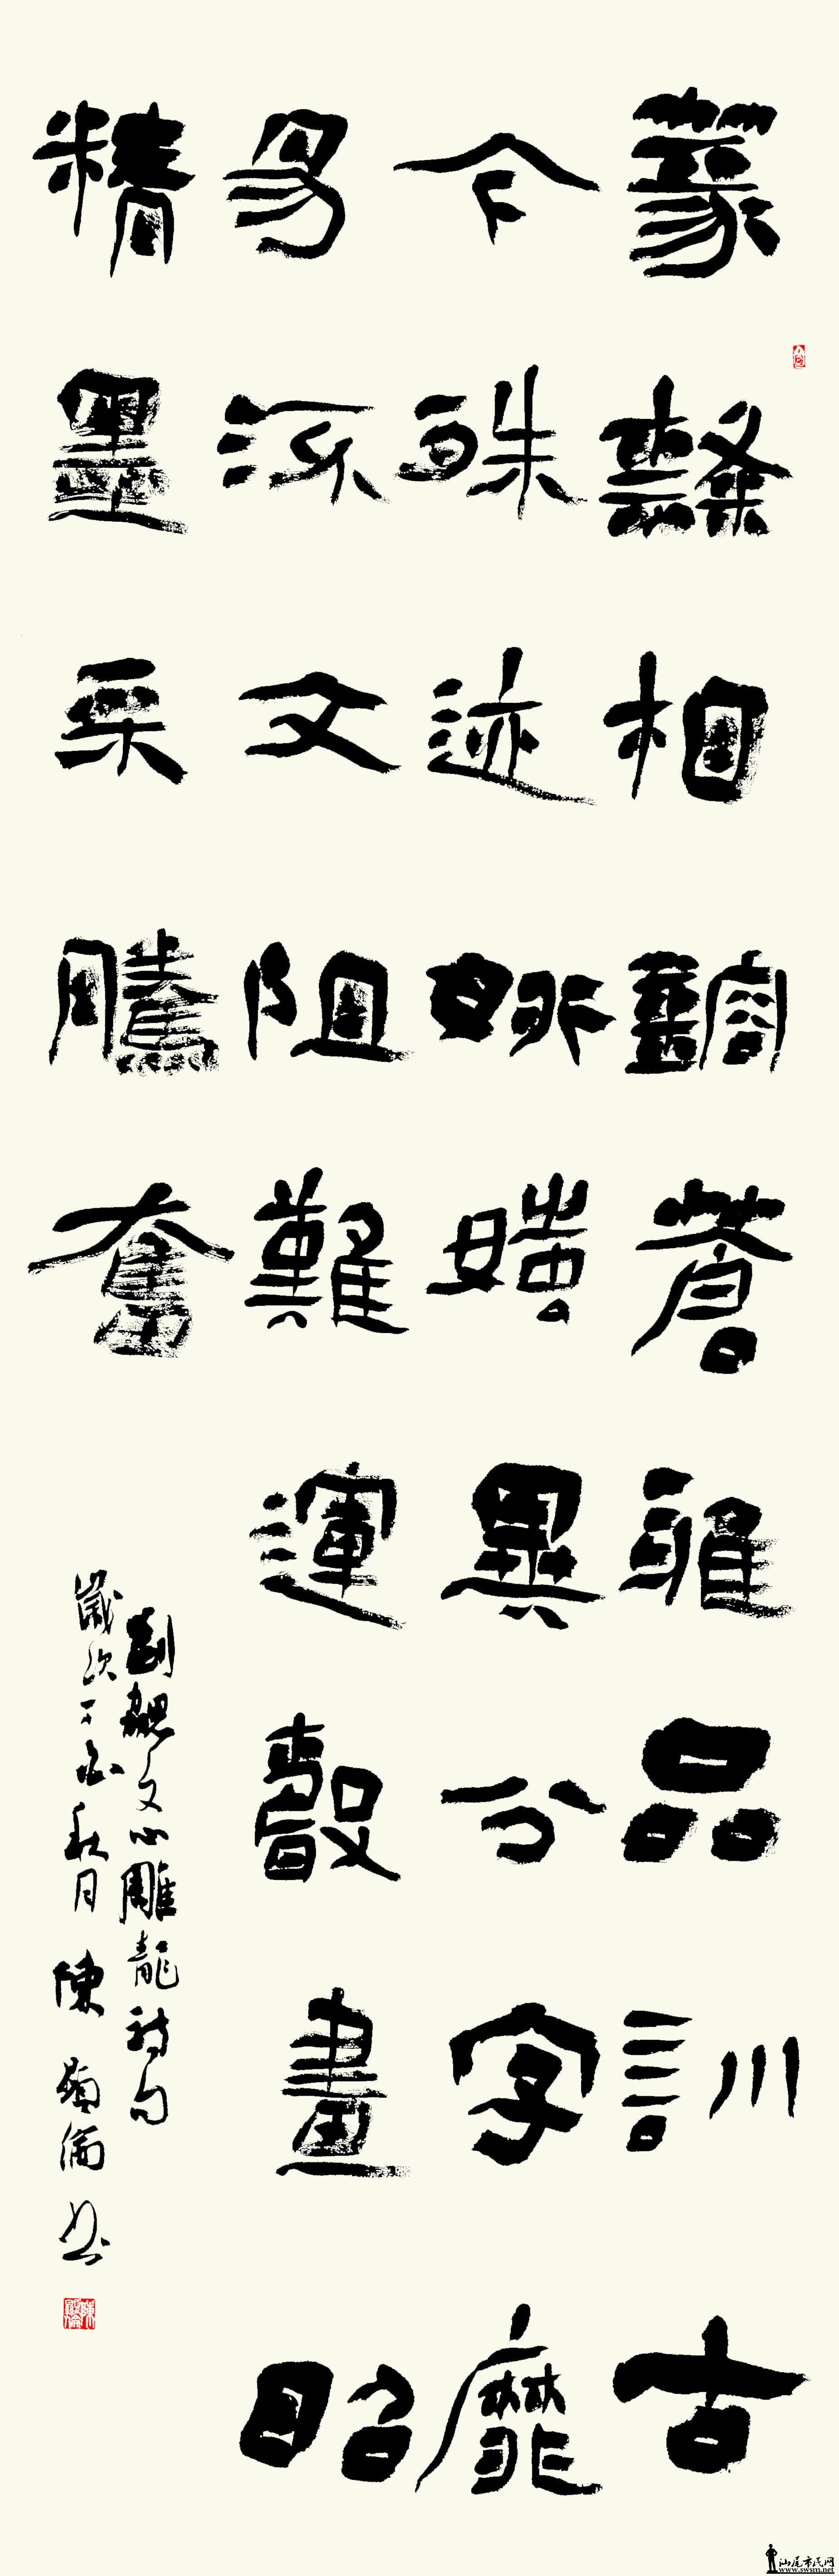 篆隸相鎔蒼雅品訓古
今殊迹妍媸異分字靡
易流文阻難運聲畫昭
精墨采騰奮
劉勰文心雕龍詩句
歲次丁酉秋月陳顯倫书
汕尾市民网
www.swsm.net